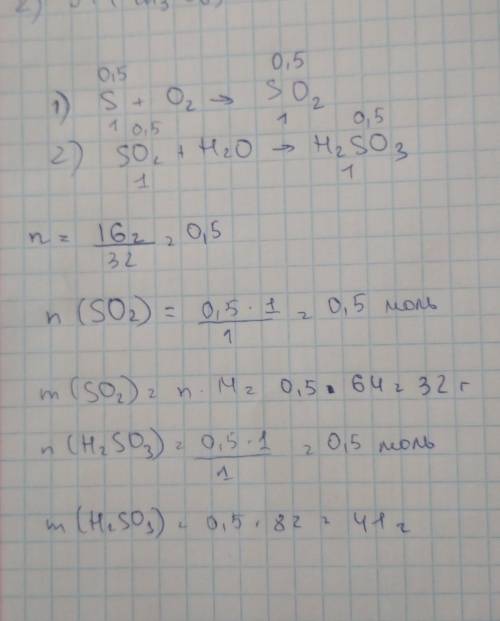 0,5 0,5
1) S + O₂ → SO₂
1 0,5 1 0,5
2) SO₂ + H₂O → H₂SO₃
1 1
n = 16г/32 = 0,5
n (SO₂) = 0,5 · 1/1 = 0,5 моль
m (SO₂) = n · M = 0,5 · 64 = 32 г
n (H₂SO₃) = 0,5 · 1/1 = 0,5 моль
m (H₂SO₃) = 0,5 · 82 = 41 г